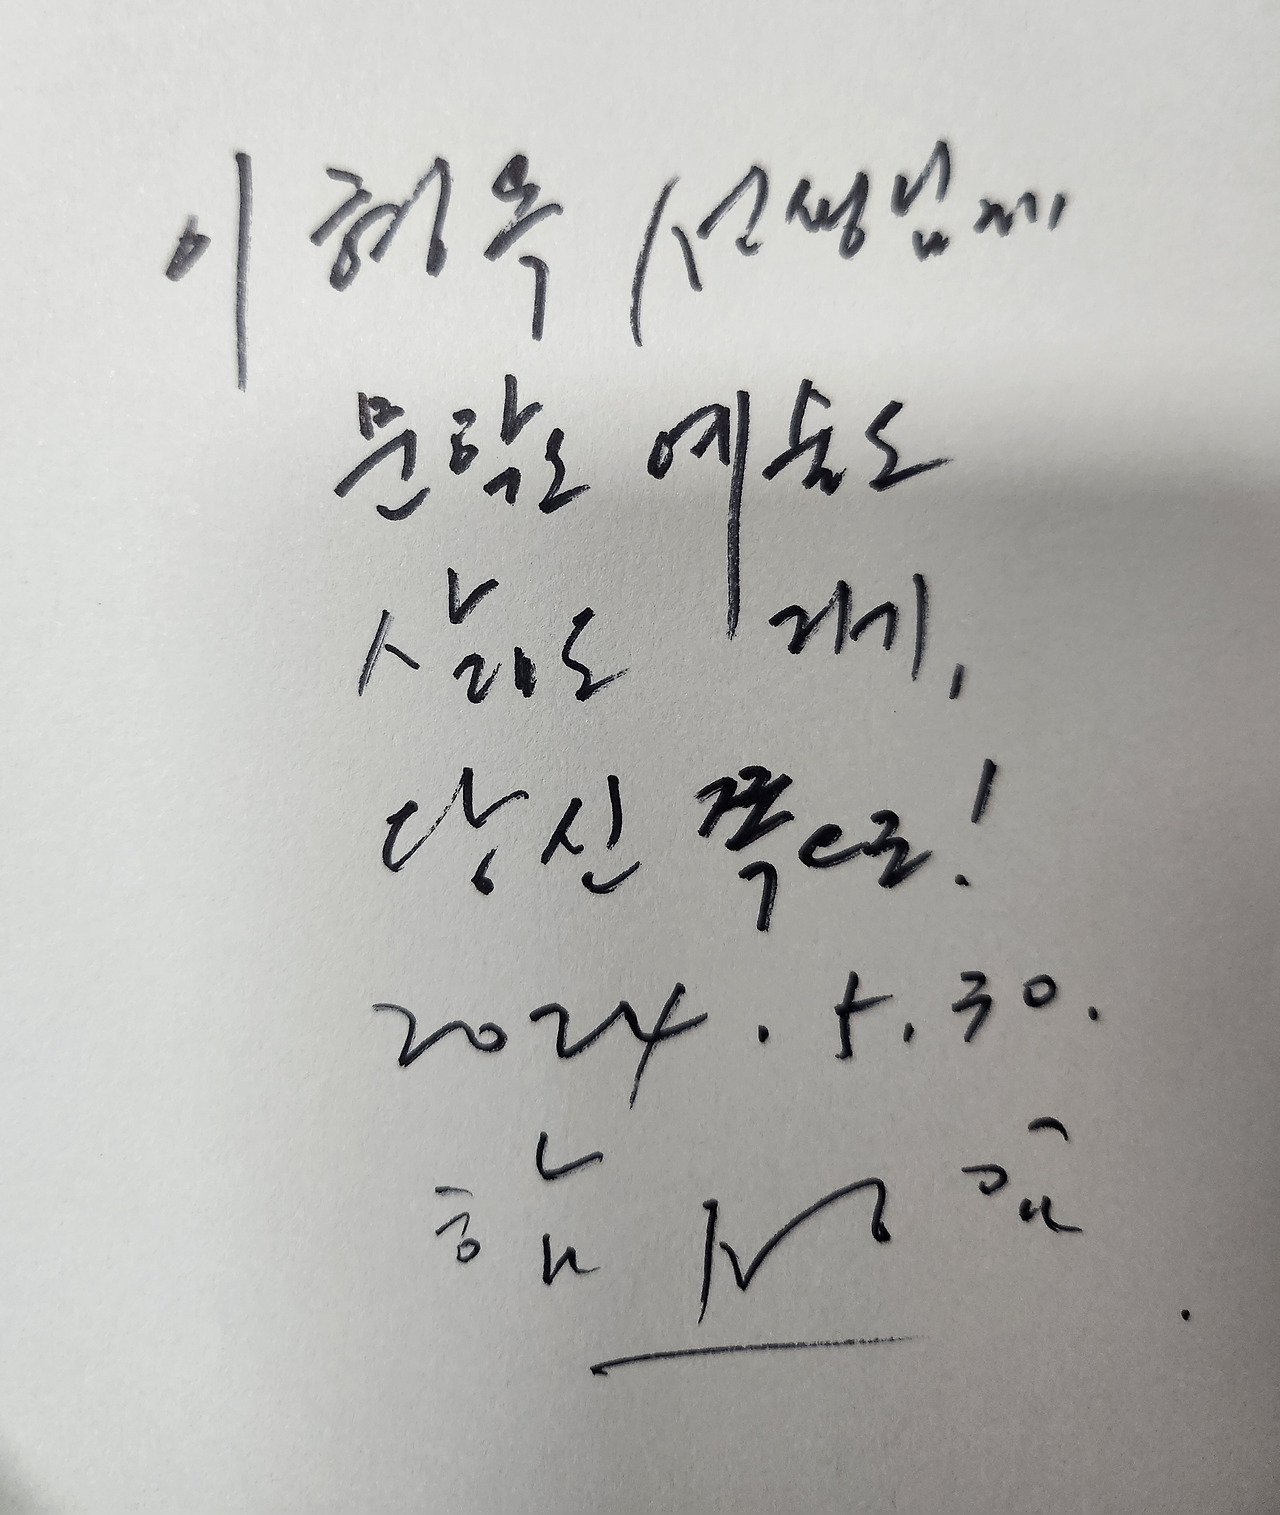 이형옥 선생님께
문학도 예술도
삶도
당신 쪽으로!
2024. 5. 30.